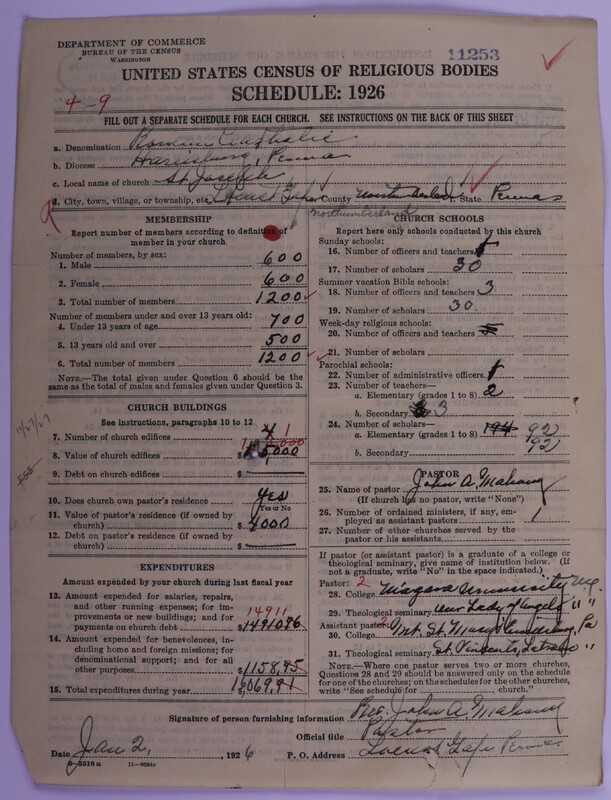 DEPARTMENT OF COMMERCE
BUREAU OF THE CENSUS
WASHINGTON
11253
UNITED STATES CENSUS OF RELIGIOUS BODIES
SCHEDULE: 1926
4-9
FILL OUT A SEPARATE SCHEDULE FOR EACH CHURCH. SEE INSTRUCTIONS ON THE BACK OF THIS SHEET
a. Denomination Roman Catholic
b. Diocese Harrisburg, Penna
c. Local name of church St Joseph
d. City, town, village, or township, etc. Locust Gap County Northumberland State Penna
Northumberland
MEMBERSHIP
Report number of members according to definition of
member in your church.
Number of members, by sex:
1. Male 600
2. Female 600
3. Total number of members 1200
Number of members under and over 13 years old:
4. Under 13 years of age 700
5. 13 years old and over 500
6. Total number of members 1200
NOTE.—The total given under Question 6 should be
the same as the total of males and females given under Question 3.
CHURCH BUILDINGS
See instructions, paragraphs 10 to 12
7. Number of church edifices 1
8. Value of church edifices $
9. Debt on church edifices $
10. Does church own pastor's residence? yes
Yes or No
11. Value of pastor's residence (if owned by
church) $ 4000
12. Debt on pastor's residence (if owned by
church) $
EXPENDITURES
Amount expended by your church during last fiscal year
13. Amount expended for salaries, repairs,
and other running expenses; for im-
provements or new buildings; and for
payments on church debt $ 14910.96
14911
14. Amount expended for benevolences, in-
cluding home and foreign missions; for
denominational support; and for all
other purposes $ 1158.95
15. Total expenditures during year
CHURCH SCHOOLS
Report here only schools conducted by this church
Sunday schools:
16. Number of officers and teachers
17. Number of scholars 30
Summer vacation Bible schools:
18. Number of officers and teachers 3
19. Number of scholars 30.
Week-day religious schools:
20. Number of officers and teachers
21. Number of scholars
Parochial schools:
22. Number of administrative officers
23. Number of teachers—
a. Elementary (grades 1 to 8) 2
b. Secondary 3
24. Number of scholars—
a. Elementary (grades 1 to 8) 194 92
92
b. Secondary
PASTOR
25. Name of pastor John A. Mahony
(If church has no pastor, write "None")
26. Number of ordained ministers, if any, em-
ployed as assistant pastors 1
27. Number of other churches served by the
pastor or his assistants
If pastor (or assistant pastor) is a graduate of a college or
theological seminary, give name of institution below. (If
not a graduate, write "No" in the space indicated.)
Pastor: 2
28. College Niagara University N.Y.
29. Theological seminary Our Lady of Angels " "
Assistant pastor: 2
30. College Mt. St. Mary's Emmitsburg, Pa
31. Theological seminary St. Vincents, Latrobe "
NOTE.—Where one pastor serves two or more churches,
Questions 28 and 29 should be answered only on the schedule
for one of the churches; on the schedules for the other churches,
write "See schedule for church."
Signature of person furnishing information Rev. John A. Mahony
Official title Pastor
Date Jan 2, 1926 P. O. Address Locust Gap Penna
8-5518a 11-9024a